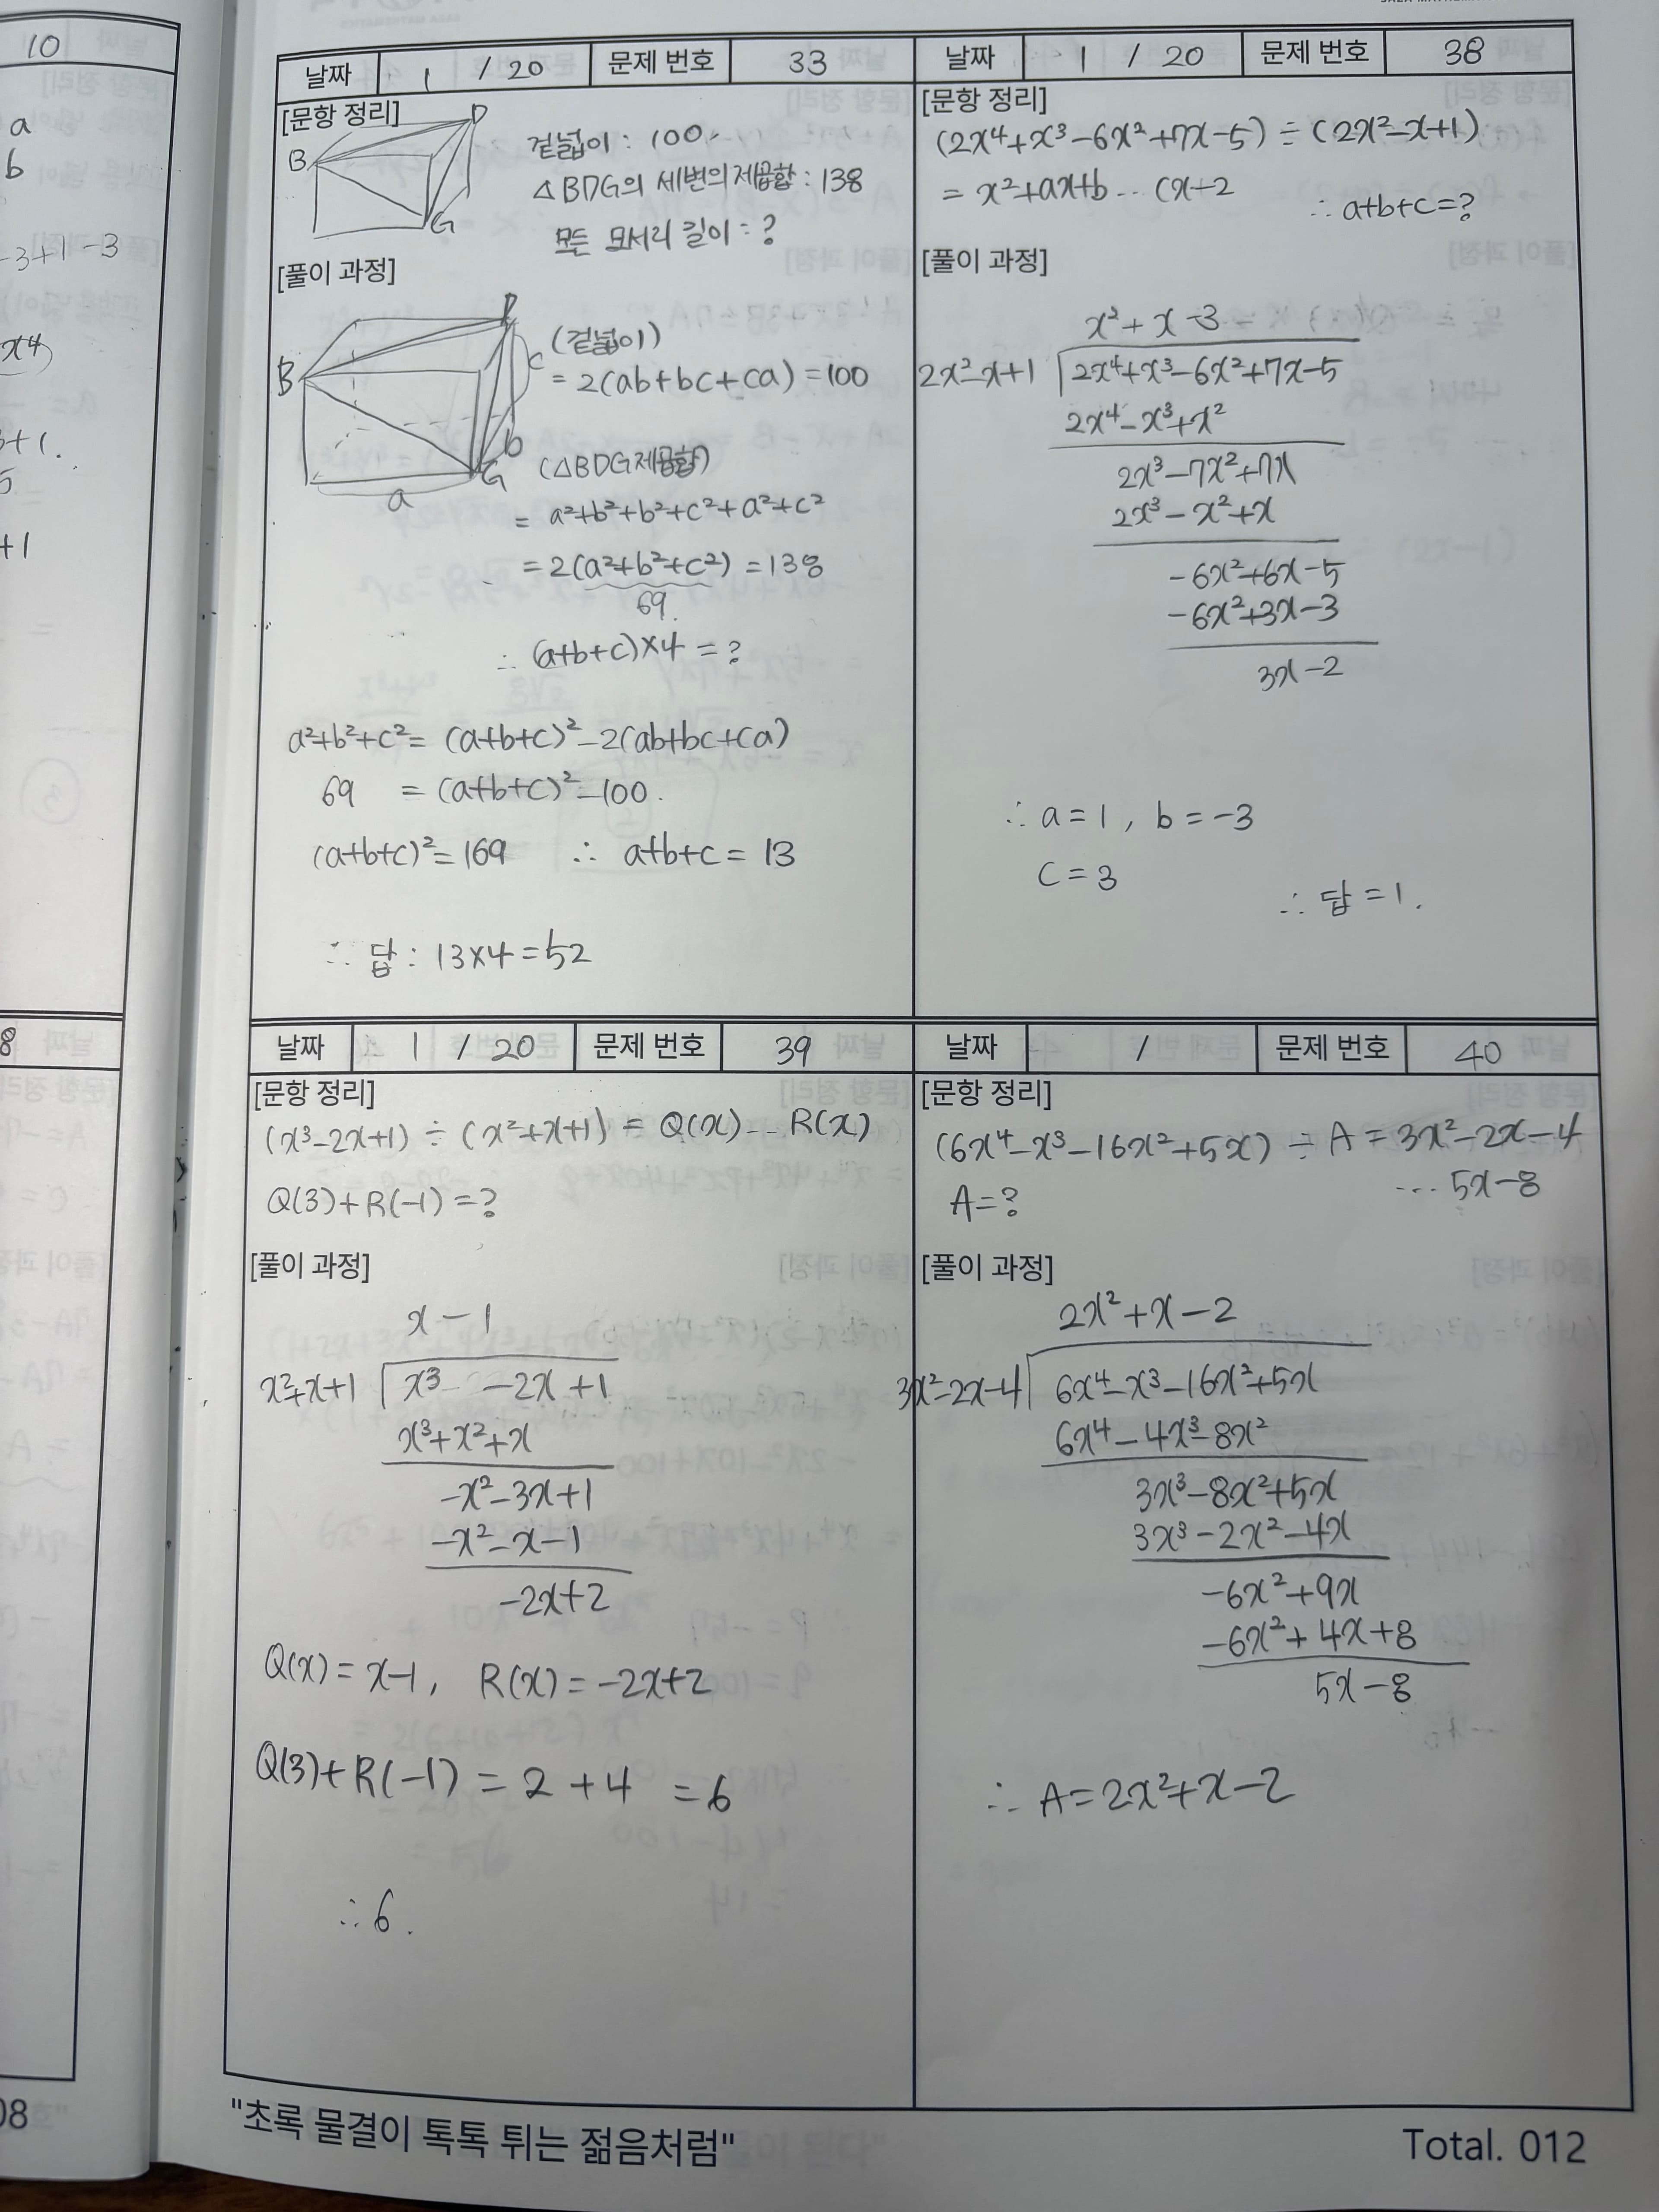 10
a
b
-3+1-3
x⁴)
3+1.
5
+1
8
08
날짜 1 / 20 문제 번호 33
[문항 정리]
B D G
겉넓이 : 100
△BDG의 세변의 제곱합 : 138
모든 모서리 길이 = ?
[풀이 과정]
B D G a b c
(겉넓이)
= 2(ab+bc+ca) = 100
(△BDG제곱합)
= a²+b²+b²+c²+a²+c²
= 2(a²+b²+c²) = 138
69
∴ (a+b+c)×4 = ?
a²+b²+c² = (a+b+c)² - 2(ab+bc+ca)
69 = (a+b+c)² - 100.
(a+b+c)² = 169 ∴ a+b+c = 13
∴ 답 : 13×4 = 52
날짜 1 / 20 문제 번호 38
[문항 정리]
(2x⁴+x³-6x²+7x-5) ÷ (2x²-x+1)
= x²+ax+b ... cx-2
∴ a+b+c = ?
[풀이 과정]
x² + x - 3
2x²-x+1 2x⁴+x³-6x²+7x-5
2x⁴-x³+x²
2x³-7x²+7x
2x³-x²+x
-6x²+6x-5
-6x²+3x-3
3x-2
∴ a = 1 , b = -3
c = 3
∴ 답 = 1.
날짜 1 / 20 문제 번호 39
[문항 정리]
(x³-2x+1) ÷ (x²+x+1) = Q(x) ... R(x)
Q(3)+R(-1) = ?
[풀이 과정]
x - 1
x²+x+1 x³ -2x+1
x³+x²+x
-x²-3x+1
-x²-x-1
-2x+2
Q(x) = x-1 , R(x) = -2x+2
Q(3)+R(-1) = 2 + 4 = 6
∴ 6.
날짜 / 문제 번호 40
[문항 정리]
(6x⁴-x³-16x²+5x) ÷ A = 3x²-2x-4
... 5x-8
A = ?
[풀이 과정]
2x² + x - 2
3x²-2x-4 6x⁴-x³-16x²+5x
6x⁴-4x³-8x²
3x³-8x²+5x
3x³-2x²-4x
-6x²+9x
-6x²+4x+8
5x-8
∴ A = 2x²+x-2
"초록 물결이 톡톡 튀는 젊음처럼"
Total. 012